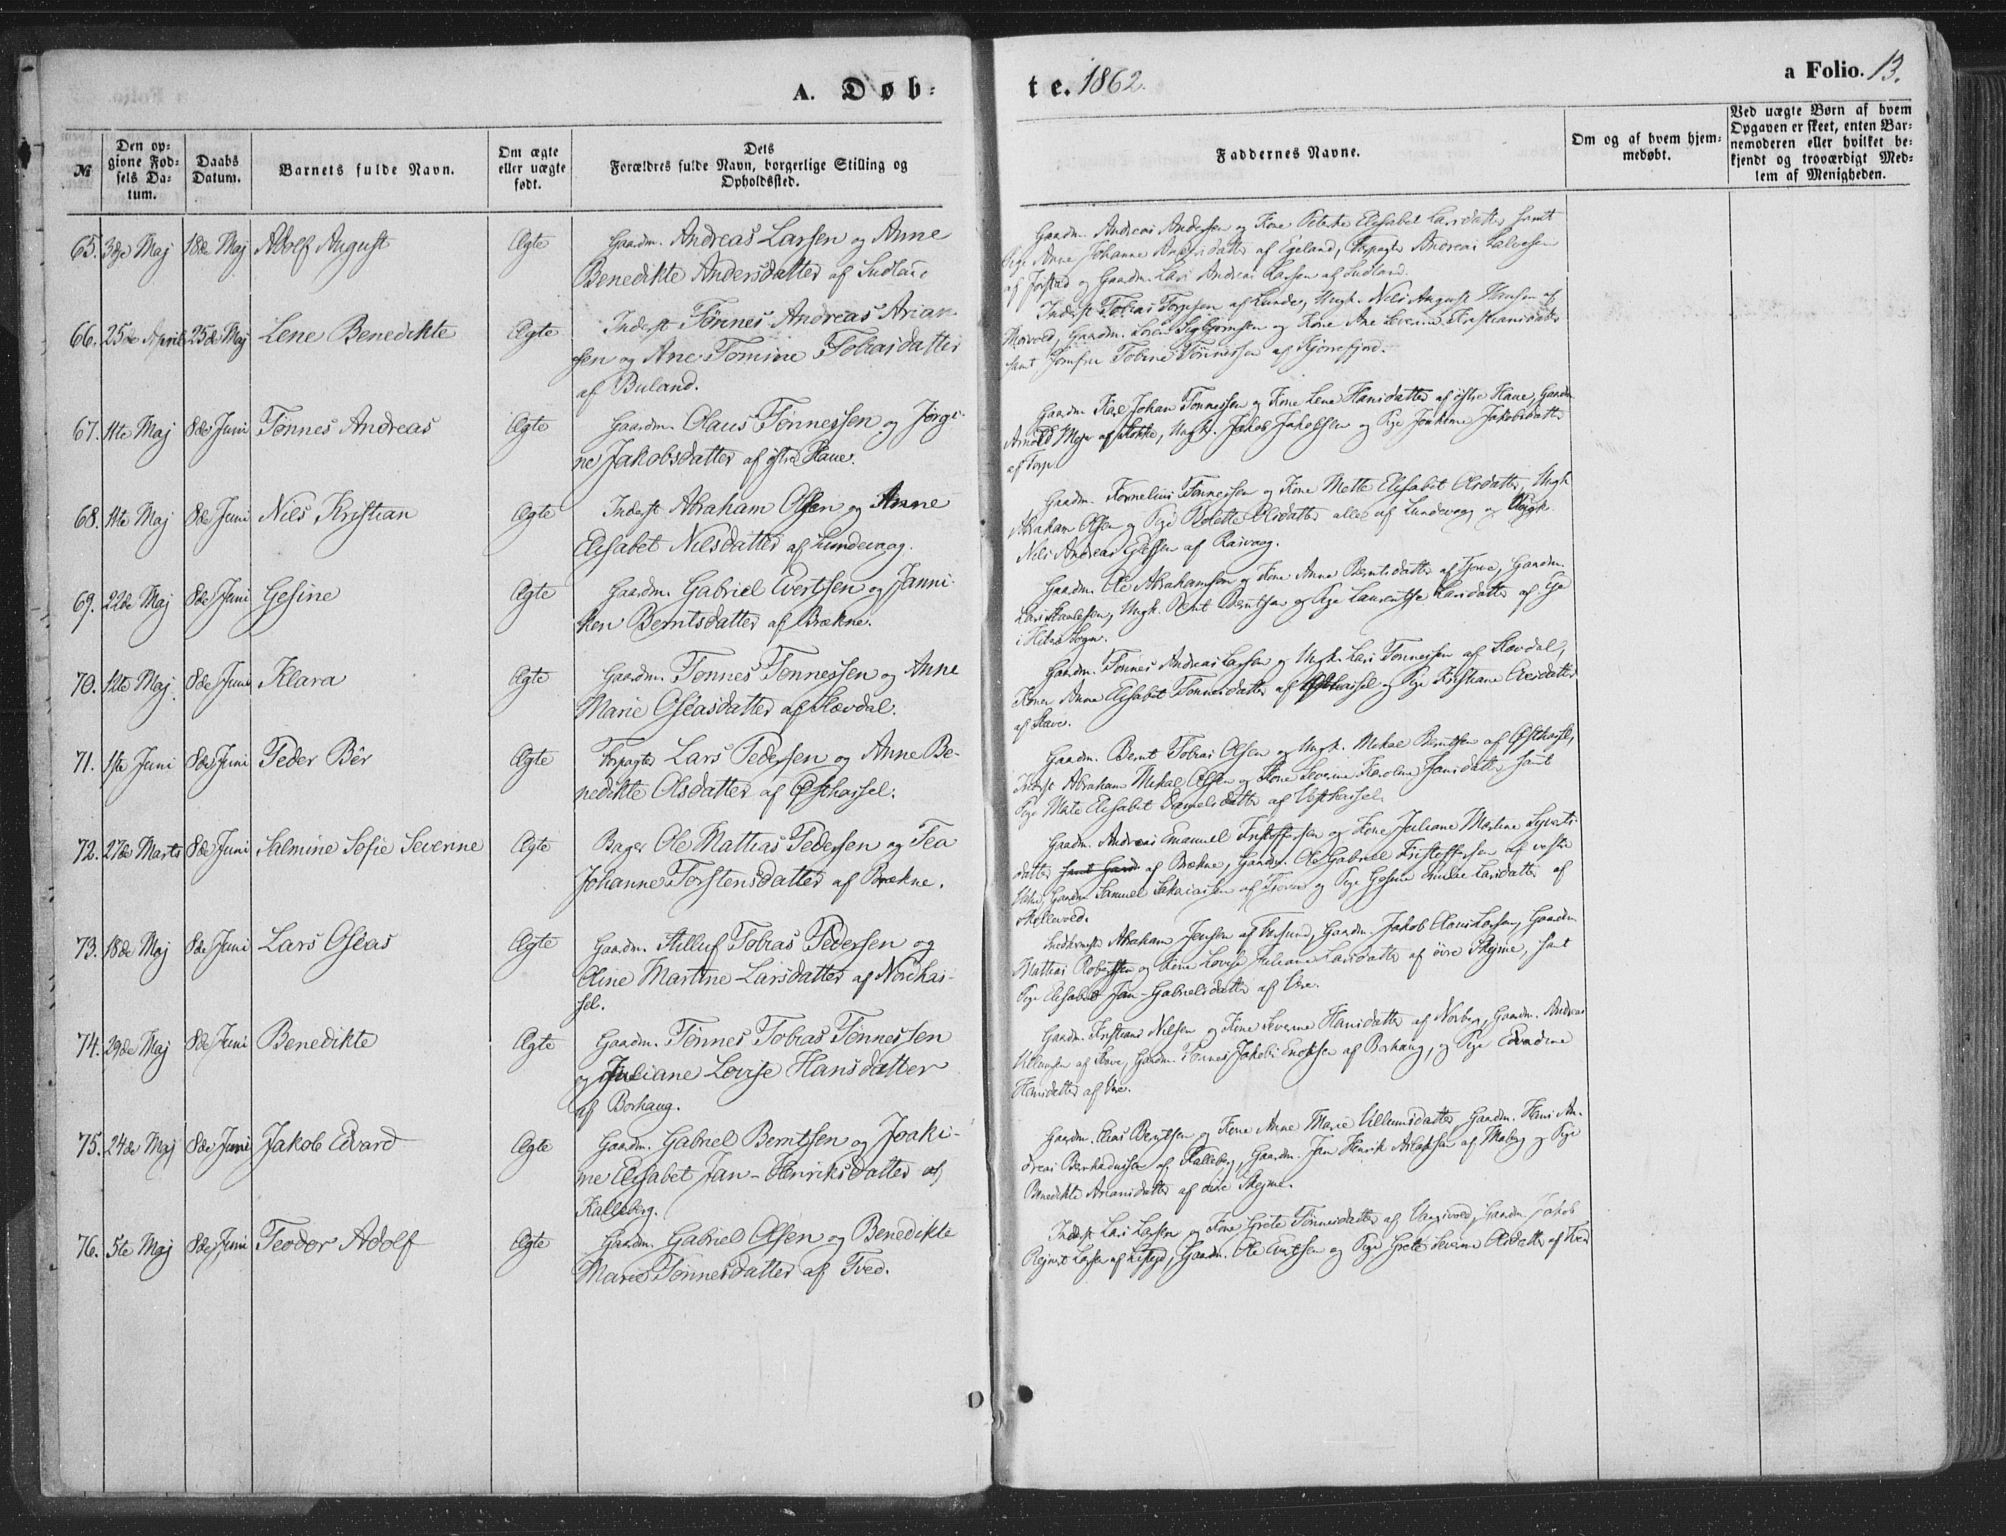 A. Døb=
te. 1862.
a Folio. 13.
№
Den op=
givne Fød=
sels Da=
tum.
Daabs
Datum.
Barnets fulde Navn.
Om ægte
eller uægte
født.
Dets
Forældres fulde Navn, borgerlige Stilling og
Opholdssted.
Faddernes Navne.
Om og af hvem hjem=
medøbt.
Ved uægte Børn af hvem
Opgaven er skeet, enten Bar=
nemoderen eller hvilket be=
kjendt og troværdigt Med=
lem af Menigheden.
65. 3die Maj 18de Maj Adolf August Ægte Gaardm. Andreas Larsen og Anne
Benedikte Andersdatter af Sudland
Gaardm. Andreas Andersen og Kone Elisabet Larsdatter samt
Pige Anne Johanne Andersdatter af Egeland, Forpagter Andreas
af Jøstad og Gaardm. Lars Andreas Larsen af Sudland.
66. 25de April 25de Maj Lene Benedikte Ægte Inderst Tønnes Andreas Arian-
sen og Ane Tomine Tobiasdatter
af Buland.
Inderst Tobias af Lunde, Ungk. Nils August Hansen af
Gaardm. Søren og Kone Ane Severine Kristiansdatter
samt Jomfru Tobine Tønnessen af
67. 11te Maj 8de Juni Tønnes Andreas Ægte Gaardm. Olaus Tønnessen og Jørgi-
ne Jakobsdatter af østre Haue.
Gaardm. Karl Johan Tønnessen og Kone Lene Hansdatter af østre Haue, Gaardm.
Arnold Meyer af Ungk. Jakob Jakobsen og Pige Jakobsdatter
af Torp.
68. 11te Maj 8de Juni Nils Kristian Ægte Inderst Abraham Olsen og Anne
Elisabet Nilsdatter af Lundevaag.
Gaardm. Kornelius Tønnessen og Kone Mette Elisabet Olsdatter, Ungk.
Abraham Olsen og Pige Olsdatter alle af Lundevaag og Ungk.
Nils Andreas af Raevaag.
69. 22de Maj 8de Juni Gesine Ægte Gaardm. Gabriel Evertsen og Janni-
ken Berntsdatter af Brekne.
Gaardm. Ole Abrahamsen og Kone Anne Berntsdatter af Gaardm.
Lars Ungk. Bernt Berntsen og Pige Larsdatter af
i Sogn.
70. 12te Maj 8de Juni Klara Ægte Gaardm. Tønnes Tønnessen og Anne
Marie Oseasdatter af Skevdal.
Gaardm. Tønnes Andreas Larsen og Ungk. Lars Tønnessen af
Kone Anne Elisabet Tønnesdatter af Østhassel og Pige Kristiane
af Have.
71. 1ste Juni 8de Juni Peder Bër Ægte Forpagter Lars Pedersen og Anne Be-
nedikte Olsdatter af Østhassel.
Gaardm. Bernt Tobias Olsen og Ungk. Mikal Berntsen af Østhassel,
Inderst Abraham Mikal Olsen og Kone Severine Karoline Jansdatter samt
Pige Elisabet Danielsdatter af Vesthassel.
72. 27de Marts 8de Juni Salmine Sofie Severine Ægte Bager Ole Mattias Pedersen og Tea
Johanne Torstensdatter af Brekne.
Gaardm. Andreas Emanuel Kristoffersen og Kone Juliane Martine Syverts-
datter af Brekne, Gaardm. Ole Gabriel Kristoffersen af vestre
Gaardm. Samuel Sakariasen af og Pige Gesine Larsdatter af
73. 18de Maj 8de Juni Lars Oseas Ægte Gaardm. Tobias Pedersen og
Oline Martine Larsdatter af Nordhas-
sel.
Abraham Jensen af Farsund, Gaardm. Jakob Larsen, Gaardm.
Mathias og Kone Lovise Juliane Larsdatter af øvre Skejme, samt
Pige Elisabet Jan-Gabrielsdatter af Ore.
74. 29de Maj 8de Juni Benedikte Ægte Gaardm. Tønnes Tobias Tønnessen
og Juliane Lovise Hansdatter
af Borhaug.
Gaardm. Kristians Nilsen og Kone Severine Hansdatter af Norberg, Gaardm. Andreas
Villumsen af Gaardm. Tønnes Jakob af Borhaug, og Pige
Hansdatter af Ore.
75. 24de Maj 8de Juni Jakob Edvard Ægte Gaardm. Gabriel Berntsen og Joaki-
me Elisabet Jan-Henriksdatter af
Kalleberg.
Gaardm. Elias Berntsen og Kone Anne Marie Villumsdatter, Gaardm. Hans An-
dreas af Kalleberg, Gaardm. Jan Henrik af og Pige
Benedikte Ariansdatter af øvre Skejme.
76. 5te Maj 8de Juni Teodor Adolf Ægte Gaardm. Gabriel Olsen og Benedikte
Marie Tønnesdatter af Tved.
Inderst Lars Larsen og Kone Grete Tønnesdatter af Gaardm. Jakob
Larsen af Gaardm. Ole Evertsen og Pige Grete Severine Olsdatter af Tved